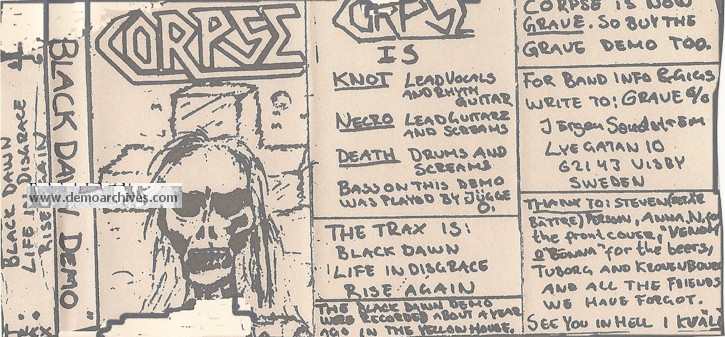 BLACK DAWN
LIFE IN DISGRACE
RISE AGAIN
"BLACK DAWN DEMO"
CORPSE
www.demoarchives.com
CORPSE
IS
KNOT LEAD VOCALS
AND RHYTM
GUITAR
NECRO LEAD GUITARZ
AND SCREAMS
DEATH DRUMS AND
SCREAMS
BASS ON THIS DEMO
WAS PLAYED BY JÖGGE
Ö.
THE TRAX IS:
BLACK DAWN
LIFE IN DISGRACE
RISE AGAIN
THE BLACK DAWN DEMO
WERE RECORDED ABOUT A YEAR
AGO IN THE YELLOW HOUSE.
CORPSE IS NOW
GRAVE. SO BUY THE
GRAVE DEMO TOO.
FOR BAND INFO & GIGS
WRITE TO: GRAVE c/o
Jörgen
LYEGATAN 10
621 43 VISBY
SWEDEN
THANX TO: STEVEN
BÄTTRE) PERSON, ANNA.N. for
the front cover, "VENOM
O'BENNA" for the beers,
TUBORG AND KRONENBOURG
AND ALL THE FRIENDS
WE HAVE FORGOT.
SEE YOU IN HELL I KVÄLL